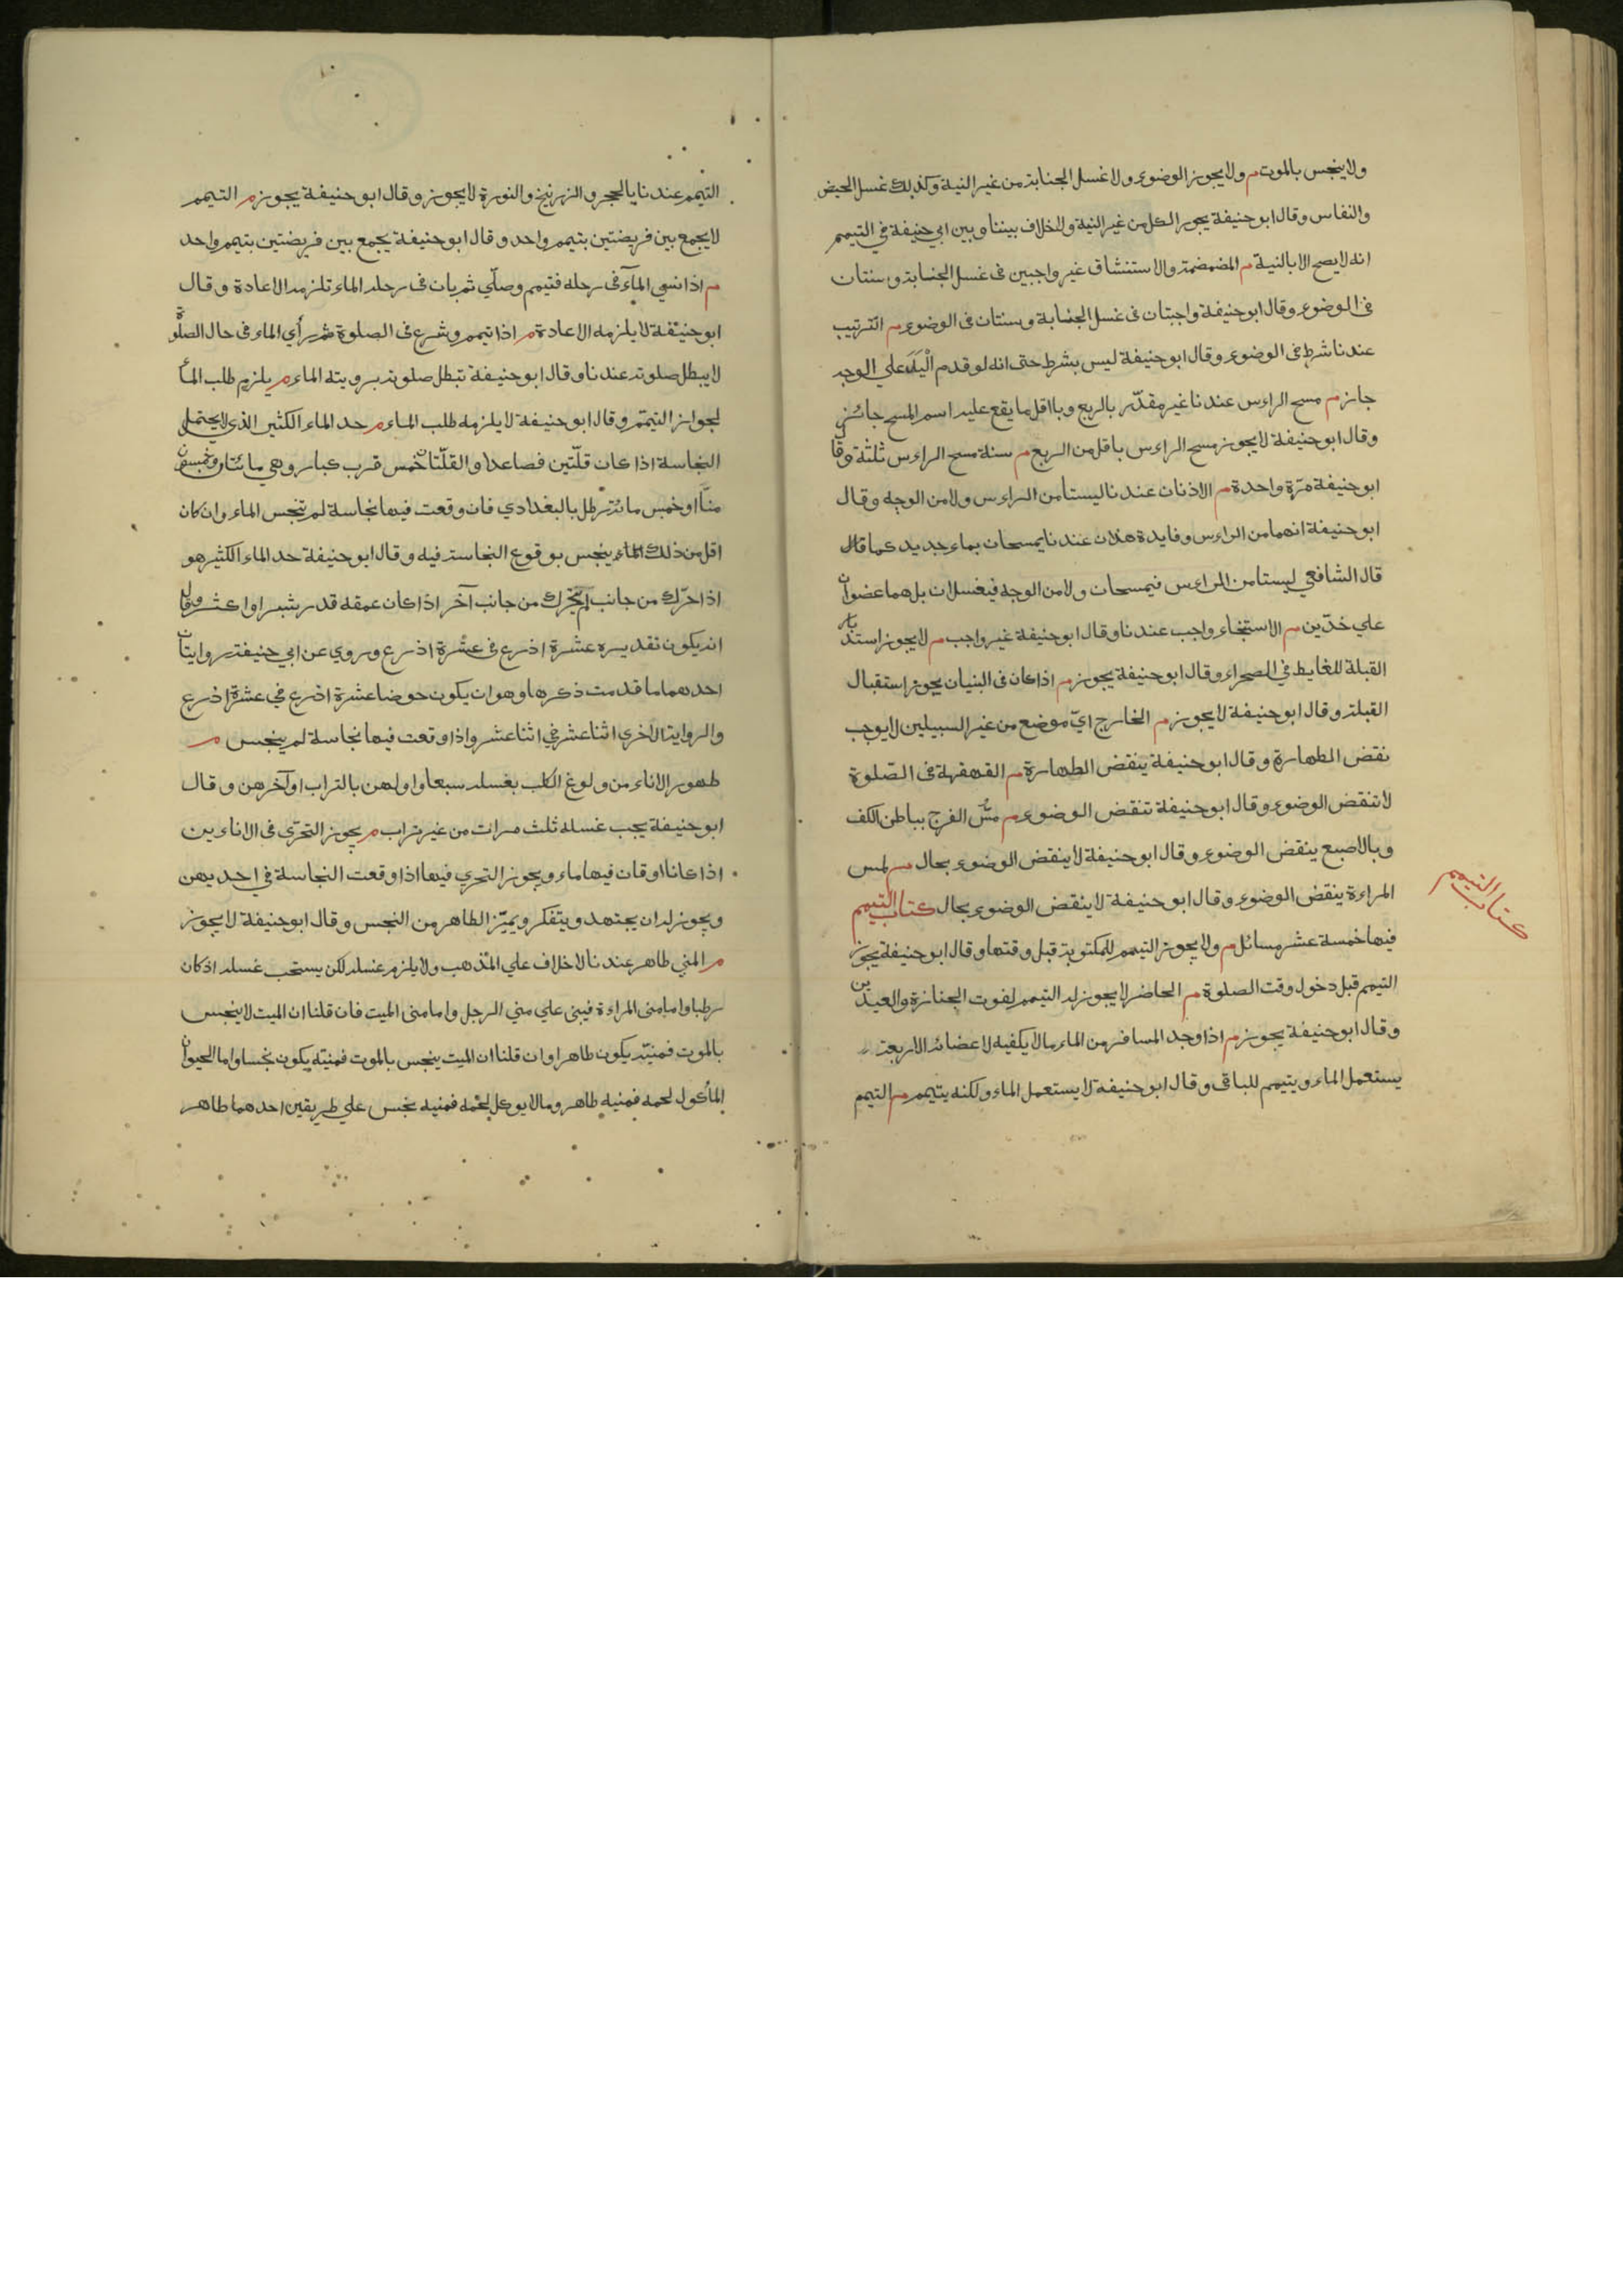 ولا ينجس بالموت م ولا يجوز الوضوء ولا غسل الجنابة من غير النية وكذلك غسل الحيض
والنفاس وقال ابو حنيفة يجوز الكل من غير النية والخلاف بيننا وبين ابي حنيفة في التيمم
انه لا يصح الا بالنية م المضمضة والاستنشاق غير واجبين في غسل الجنابة وسنتان
في الوضوء وقال ابو حنيفة واجبتان في غسل الجنابة وسنتان في الوضوء م الترتيب
عندنا شرط في الوضوء وقال ابو حنيفة ليس بشرط حتى انه لو قدم اليد علي الوجه
جاز م مسح الراءس عندنا غير مقدّر بالربع وبا اقل ما يقع عليه اسم المسح جائز
وقال ابو حنيفة لا يجوز مسح الراءس باقل من الربع م سنة مسح الراءس ثلثة وقال
ابو حنيفة مرّة واحدة م الاذنان عندنا ليستا من الراءس ولا من الوجه وقال
ابو حنيفة انهما من الراءس وفايدة هذان عندنا يمسحان بماء جديد كما قال
قال الشافعي ليستا من الراءس فيمسحان ولا من الوجه فيغسلان بل هما عضوان
علي حدّين م الاستنجاء واجب عندنا وقال ابو حنيفة غير واجب م لا يجوز استدبار
القبلة للغايط في الصحراء وقال ابو حنيفة يجوز م اذا كان في البنيان يجوز استقبال
القبلة وقال ابو حنيفة لا يجوز م الخارج ايّ موضع من غير السبيلين لا يوجب
نقض الطهارة وقال ابو حنيفة ينقض الطهارة م القهقهة في الصّلوة
لا تنقض الوضوء وقال ابو حنيفة تنقض الوضوء م مسّ الفرج بباطن الكف
وبالاصبع ينقض الوضوء وقال ابو حنيفة لا ينقض الوضوء بحال م لمس
المراءة ينقض الوضوء وقال ابو حنيفة لا ينقض الوضوء بحال كتاب التيمم
كتاب التيمم
فيها خمسة عشر مسائل م ولا يجوز التيمم للمكتوبة قبل وقتها وقال ابو حنيفة يجوز
التيمم قبل دخول وقت الصلوة م الحاضر لا يجوز له التيمم لفوت الجنازة والعيدين
وقال ابو حنيفة يجوز م اذا وجد المسافر من الماء مالا يكفيه لاعضائه الاربعة
يستعمل الماء ويتيمم للباقي وقال ابو حنيفة لا يستعمل الماء ولكنه يتيمم م التيمم
التيمم عندنا بالحجر والزرنيخ والنورة لا يجوز وقال ابو حنيفة يجوز م التيمم
لا يجمع بين فريضتين بتيمم واحد وقال ابو حنيفة يجمع بين فريضتين بتيمم واحد
م اذا نسي المآء في رحله فتيمم وصلّي ثم بان في رحله الماء تلزمه الاعادة وقال
ابو حنيفة لا يلزمه الاعادة م اذا تيمم وشرع في الصلوة ثم رأي الماء في حال الصلوة
لا يبطل صلوته عندنا وقال ابو حنيفة تبطل صلوته برويته الماء م يلزم طلب المآ
لجواز التيمّم وقال ابو حنيفة لا يلزمه طلب الماء م حد الماء الكثير الذي لا يحتمل
النجاسة اذا كان قلّتين فصاعدا والقلّتان خمس قرب كبار وهي مائتان وخمسون
منّا او خمس مائة رطل بالبغدادي فان وقعت فيها نجاسة لم تنجس الماء وان كان
اقل من ذلك الماء ينجس بوقوع النجاسة فيه وقال ابو حنيفة حد الماء الكثير هو
اذا حرّك من جانب لم يتحرك من جانب آخر اذا كان عمقه قدر شبر او اكثر وقال
انه يكون تقديره عشرة اذرع في عشرة اذرع وروي عن ابي حنيفة روايتان
احدهما ما قدمت ذكرها وهو ان يكون حوضا عشرة اذرع في عشرة اذرع
والرواية الاخري اثنا عشر في اثنا عشر واذا وقعت فيها نجاسة لم ينجس م
طهور الاناء من ولوغ الكلب بغسله سبعا واولهن بالتراب او آخرهن وقال
ابو حنيفة يجب غسله ثلث مرات من غير تراب م يجوز التحرّي في الاناءين
اذا كانا او قان فيها ماء ويجوز التحري فيها اذا وقعت النجاسة في احديهن
ويجوز له ان يجتهد ويتفكر ويميّز الطاهر من النجس وقال ابو حنيفة لا يجوز
م المني طاهر عندنا لا خلاف علي المذهب ولا يلزم غسله لكن يستحب غسله اذ كان
رطبا واما منى المراءة فيبنى علي مني الرجل واما منى الميت فان قلنا ان الميت لا ينجس
بالموت فمنيّه يكون طاهرا وان قلنا ان الميت ينجس بالموت فمنيه يكون نجسا واما الحيوان
المأكول لحمه فمنيه طاهر ومالا يوكل لحمه فمنيه نجس علي طريقين احدهما طاهر